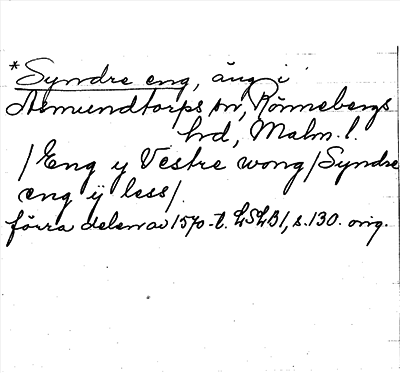 *Syndre eng, äng i
Asmundtorps sn, Rönnebergs
hd, Malm. l.
/Eng y Vestre wong/Syndre
eng ij less/.
förra delen av 1570-t. LSLB1, s. 130. orig.